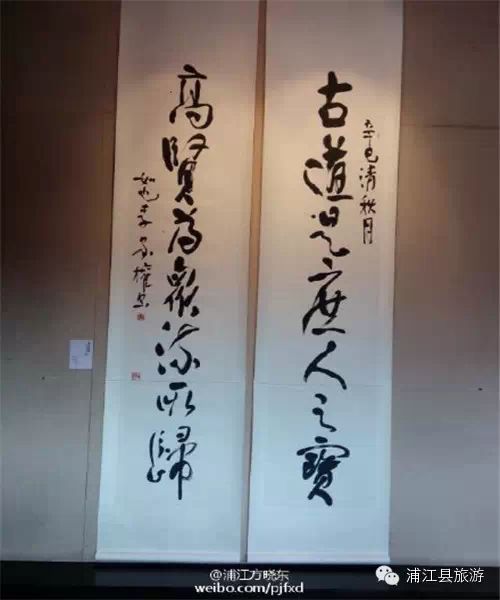 古道是庶人之寶
辛巳清秋月
高賢為眾流所歸
@浦江方晓东
weibo.com/pjfxd
浦江县旅游